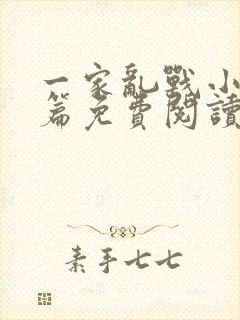 一家亂戰小
篇免費閱讀
素手七七